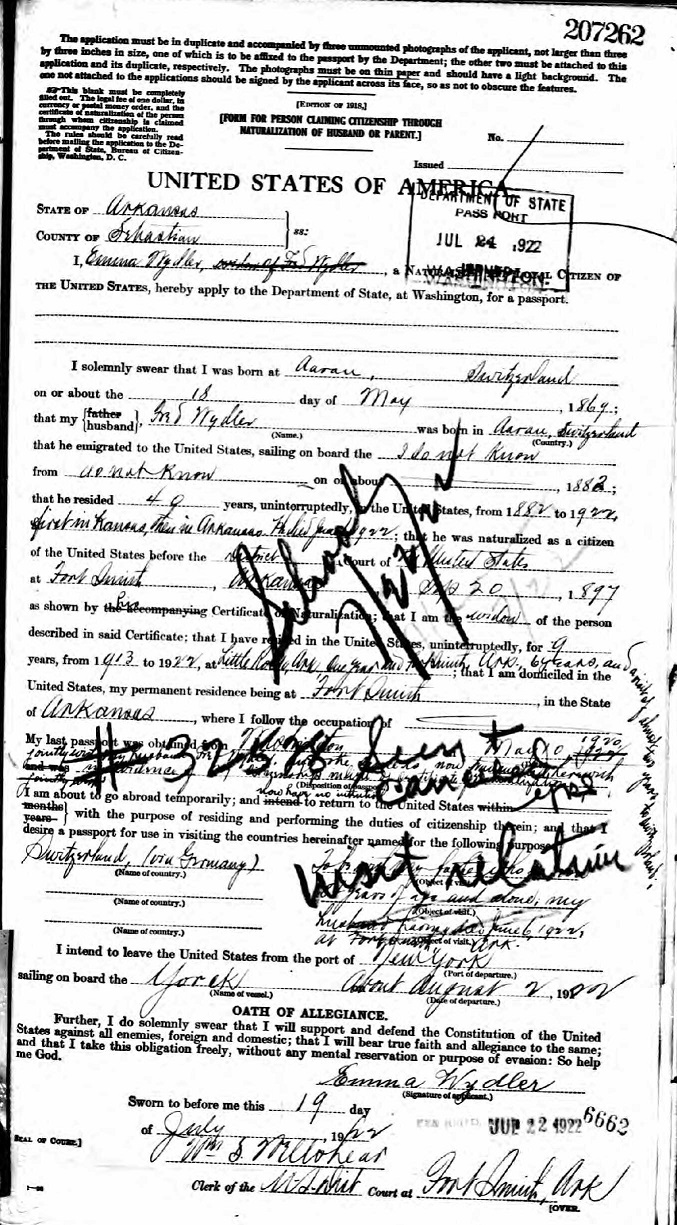 207262
The application must be in duplicate and accompanied by three unmounted photographs of the applicant, not larger than three
by three inches in size, one of which is to be affixed to the passport by the Department; the other two must be attached to this
application and its duplicate, respectively. The photographs must be on thin paper and should have a light background. The
one not attached to the applications should be signed by the applicant across its face, so as not to obscure the features.
This blank must be completely
filled out. The legal fee of one dollar, in
currency or postal money order, and the
certificate of naturalization of the person
through whom citizenship is claimed
must accompany the application.
The rules should be carefully read
before mailing the application to the De-
partment of State, Bureau of Citizen-
ship, Washington, D. C.
[EDITION OF 1918.]
[FORM FOR PERSON CLAIMING CITIZENSHIP THROUGH
NATURALIZATION OF HUSBAND OR PARENT.]
No.
Issued
UNITED STATES OF AMERICA.
DEPARTMENT OF STATE
PASSPORT
JUL 24 1922
WASHINGTON.
STATE OF Arkansas
COUNTY OF Sebastian
ss:
I, Emma Wydler, widow of Fred Wydler, a NATURALIZED AND LOYAL CITIZEN OF
THE UNITED STATES, hereby apply to the Department of State, at Washington, for a passport.
I solemnly swear that I was born at Aarau, Switzerland
on or about the 18 day of May, 1869;
that my {father husband}, Fred Wydler was born in Aarau, Switzerland
(Name.) (Country.)
that he emigrated to the United States, sailing on board the I do not know
from do not know on or about 1882;
that he resided 40 years, uninterruptedly, in the United States, from 1882 to 1922,
first in Kansas, then in Arkansas. He died June 1922; that he was naturalized as a citizen
of the United States before the District Court of United States
at Fort Smith, Arkansas Sep 20, 1897
as shown by the accompanying Certificate of Naturalization; that I am the widow of the person
described in said Certificate; that I have resided in the United States, uninterruptedly, for 9
years, from 1913 to 1922, at Little Rock, Ark, one year and Fort Smith, Ark., years, and
; that I am domiciled in the
United States, my permanent residence being at Fort Smith, in the State
of Arkansas, where I follow the occupation of
My last passport was obtained from Washington May 20, 1920
jointly with my husband
(Disposition of passport.)
I am about to go abroad temporarily; and intend to return to the United States within
{months years} with the purpose of residing and performing the duties of citizenship therein; and that I
desire a passport for use in visiting the countries hereinafter named for the following purpose:
Switzerland, (via Germany)
(Name of country.) (Object of visit.)
years of age and alone, my
(Name of country.) (Object of visit.)
husband having died June 6, 1922,
(Name of country.) (Object of visit.)
at Fort Smith, Ark.
visit relatives
I intend to leave the United States from the port of New York
(Port of departure.)
sailing on board the Yorck About August 2, 1922
(Name of vessel.) (Date of departure.)
OATH OF ALLEGIANCE.
Further, I do solemnly swear that I will support and defend the Constitution of the United
States against all enemies, foreign and domestic; that I will bear true faith and allegiance to the same;
and that I take this obligation freely, without any mental reservation or purpose of evasion: So help
me God.
Emma Wydler
(Signature of applicant.)
Sworn to before me this 19 day
of July, 1922
JUL 22 1922 6662
SEAL OF COURT.]
Clerk of the U S Dist Court at Fort Smith, Ark
[OVER.